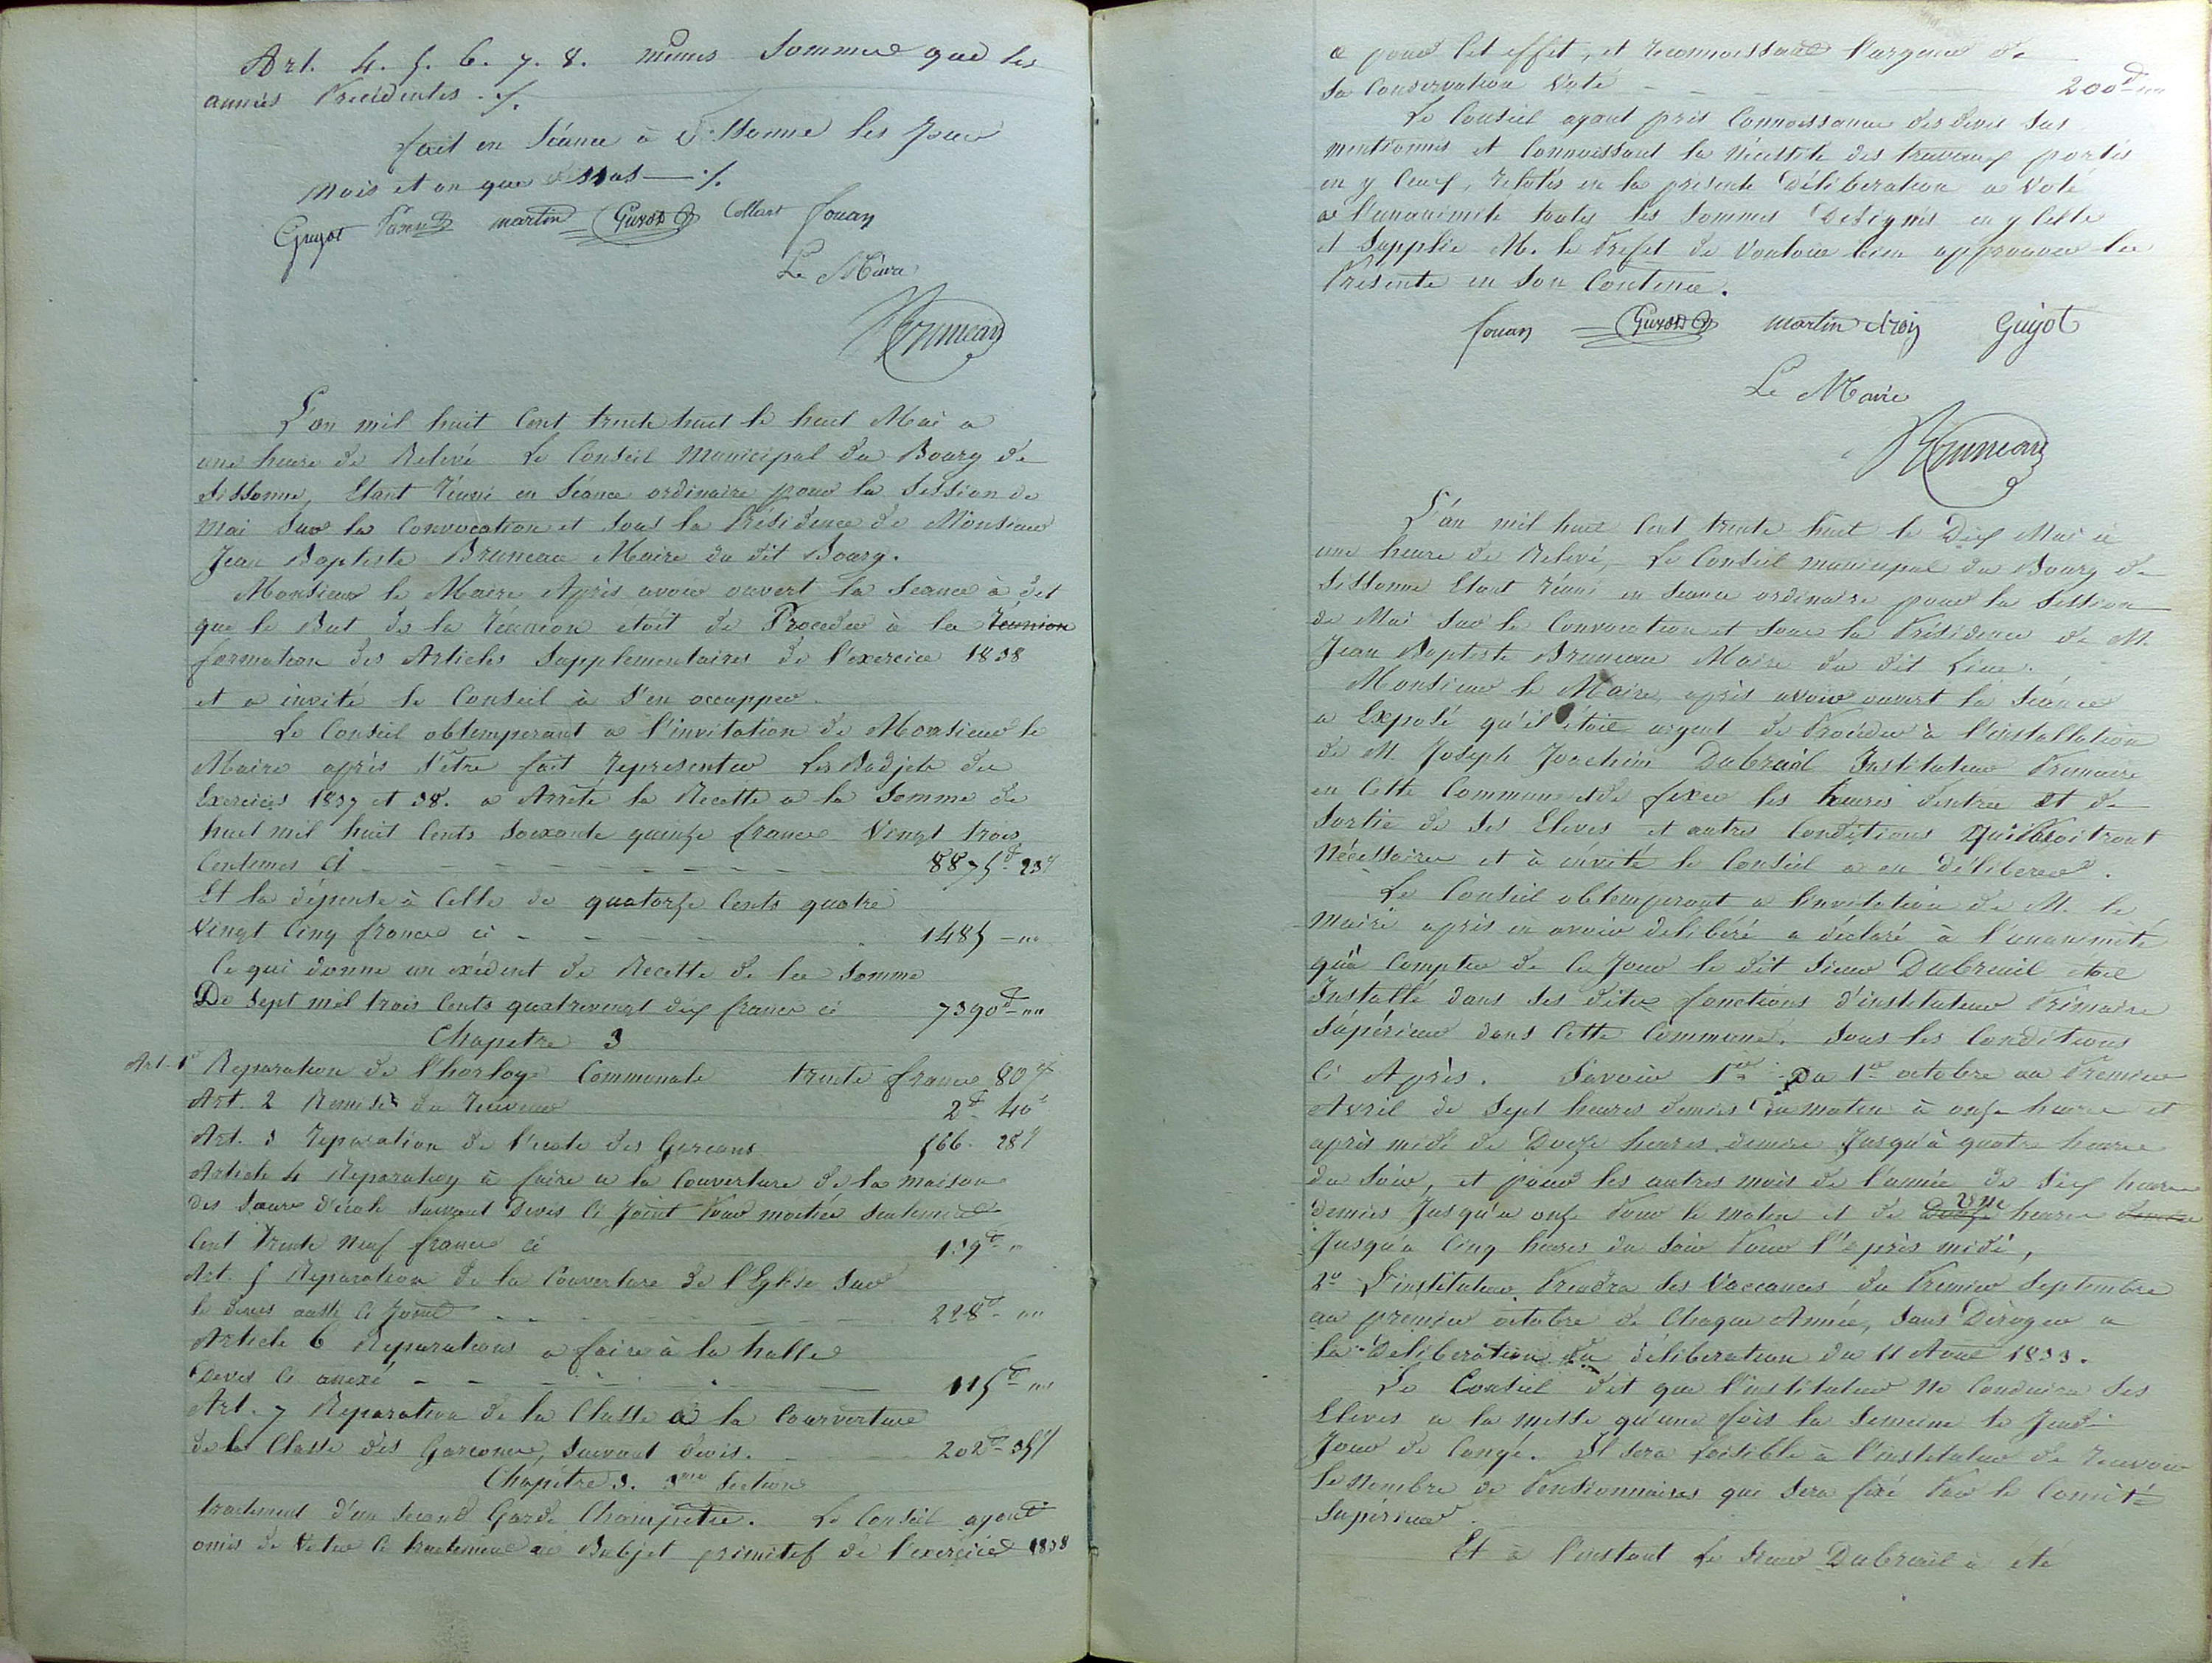 Art. 4. 5. 6. 7. 8. mêmes Sommes que les
années Précédentes ./.
fait en Séance à Sissonne les Jour
Mois et an que dessus — ./.
Guyot martin Guyot Collart fouan
Le Maire
Bruneau
L'an mil huit Cent trente huit le huit Mai a
une heure de Relevé Le Conseil Municipal du Bourg de
Sissonne, Etant réuni en Séance ordinaire pour la Session de
Mai Sur la Convocation et Sous la Présidence de Monsieur
Jean Baptiste Bruneau Maire du dit Bourg.
Monsieur le Maire Après avoir ouvert la Séance à dit
que le But de la réunion étoit de Procéder à la réunion
formation des Articles Supplementaires de l'exercice 1838
et a invité le Conseil à S'en occupper.
Le Conseil obtemperant a l'invitation de Monsieur le
Maire après S'être fait représenter Les Budjets des
Exercices 1837 et 38. a Arrête la Recette a la Somme de
huit mil huit Cents Soixante quinze francs Vingt trois
Centimes Ci - - - - - - 8875f 23c
Et la dépense à Celle de quatorze Cents quatre
Vingt Cinq francs ci - - - - 1485 - "
Ce qui donne un exédent de Recette de la Somme
De Sept mil trois Cents quatrevingt dix francs ci 7390f - ""
Chapitre 3
Art. 1er Reparation de l'horloge Communale trente francs 80 f
Art. 2 Remises du receveur 2f 40c
Art. 3 reparation de l'ecole des Garcons 566. 28c
Article 4 Reparation à faire a la Couverture de la maison
des Sœurs d'école Suivant Devis Ci Joint Pour moitié Seulement
Cent Trente Neuf francs ci 139f - "
Art. 5 Reparation de la Couverture de l'Eglise Sur
le devis aussi Ci Joint - - - - 228f - ""
Article 6 Reparations a faire à la halle
Devis Ci anexé - - - - 115f - ""
Art. 7 Reparation de la Classe à la Couverture
de la Classe des Garcons, Suivant devis. 202f - 35c
Chapitre 3. 3me Section
traitement d'un Second Garde Champêtre. Le Conseil ayant
omis de Voter Ce traitement au Budjet primitif de l'exercice 1838
a pour Cet effet, et reconnoissant l'urgence de
Sa Conservation Voté - - - 200f - ""
Le Conseil ayant pris Connoissance des devis Sus
mentionnés et Connoissant la nécessité des travaux portés
en y Ceux, relatés en la présente Délibération a Voté
a l'unanimité toutes les Sommes Désignés en y Celle
et Supplie M. le Préfet de Vouloir bien approuver la
Présente en Son Contenu.
fouan Guyot martin Guyot
Le Maire
Bruneau
L'an mil huit Cent trente huit le Dix Mai à
une heure de Relevé, Le Conseil municipal du Bourg de
Sissonne Etant réuni en Séance ordinaire pour la Session
de Mai Sur le Convocation et Sous la Présidence de M.
Jean Baptiste Bruneau Maire du dit Lieu.
Monsieur le Maire, après avoir ouvert la Séance
a Exposé qu'il étoit urgent de Procéder à l'installation
de M. Joseph Joachim Dubreuil Instituteur Primaire
en Cette Commune et de fixer les heures d'entrée et de
Sortie de Ses Eleves et autres Conditions qui Paroitront
Nécessaires et à invité le Conseil a en délibérer.
Le Conseil obtemperant a l'invitation de M. le
Maire après en avoir délibéré a déclaré à l'unanimité
qu'à Compter de Ce Jour le dit Sieur Dubreuil étoit
Installé dans Ses dites fonctions d'instituteur Primaire
Supérieur dans Cette Commune. Sous les Conditions
Ci Après. Savoir 1er Du 1er octobre au Premier
Avril de Sept heures demies Du matin à onze heures et
après midi de Douze heures demie Jusqu'à quatre heures
du Soir, et pour les autres mois de l'année de Six heures
demies Jusqu'a onze Pour le matin et de Douze une heure demie
Jusqu'a Cinq heures du Soir Pour l'après midi,
2o L'instituteur Prendra Ses Vaccances du Premier Septembre
au premier octobre de Chaque Année, Sans Déroger a
la Délibération du délibération du 11 Aout 1833.
Le Conseil dit que l'instituteur Ne Conduira Ses
Eleves a la Messe qu'une fois la Semaine le Jeudi
Jour de Congé. Il Sera Loisible à l'instituteur de recevoir
le Nombre de Pensionnaires que Sera fixé Par le Comité
Supérieur.
Et à l'instant Le Sieur Dubreuil à été